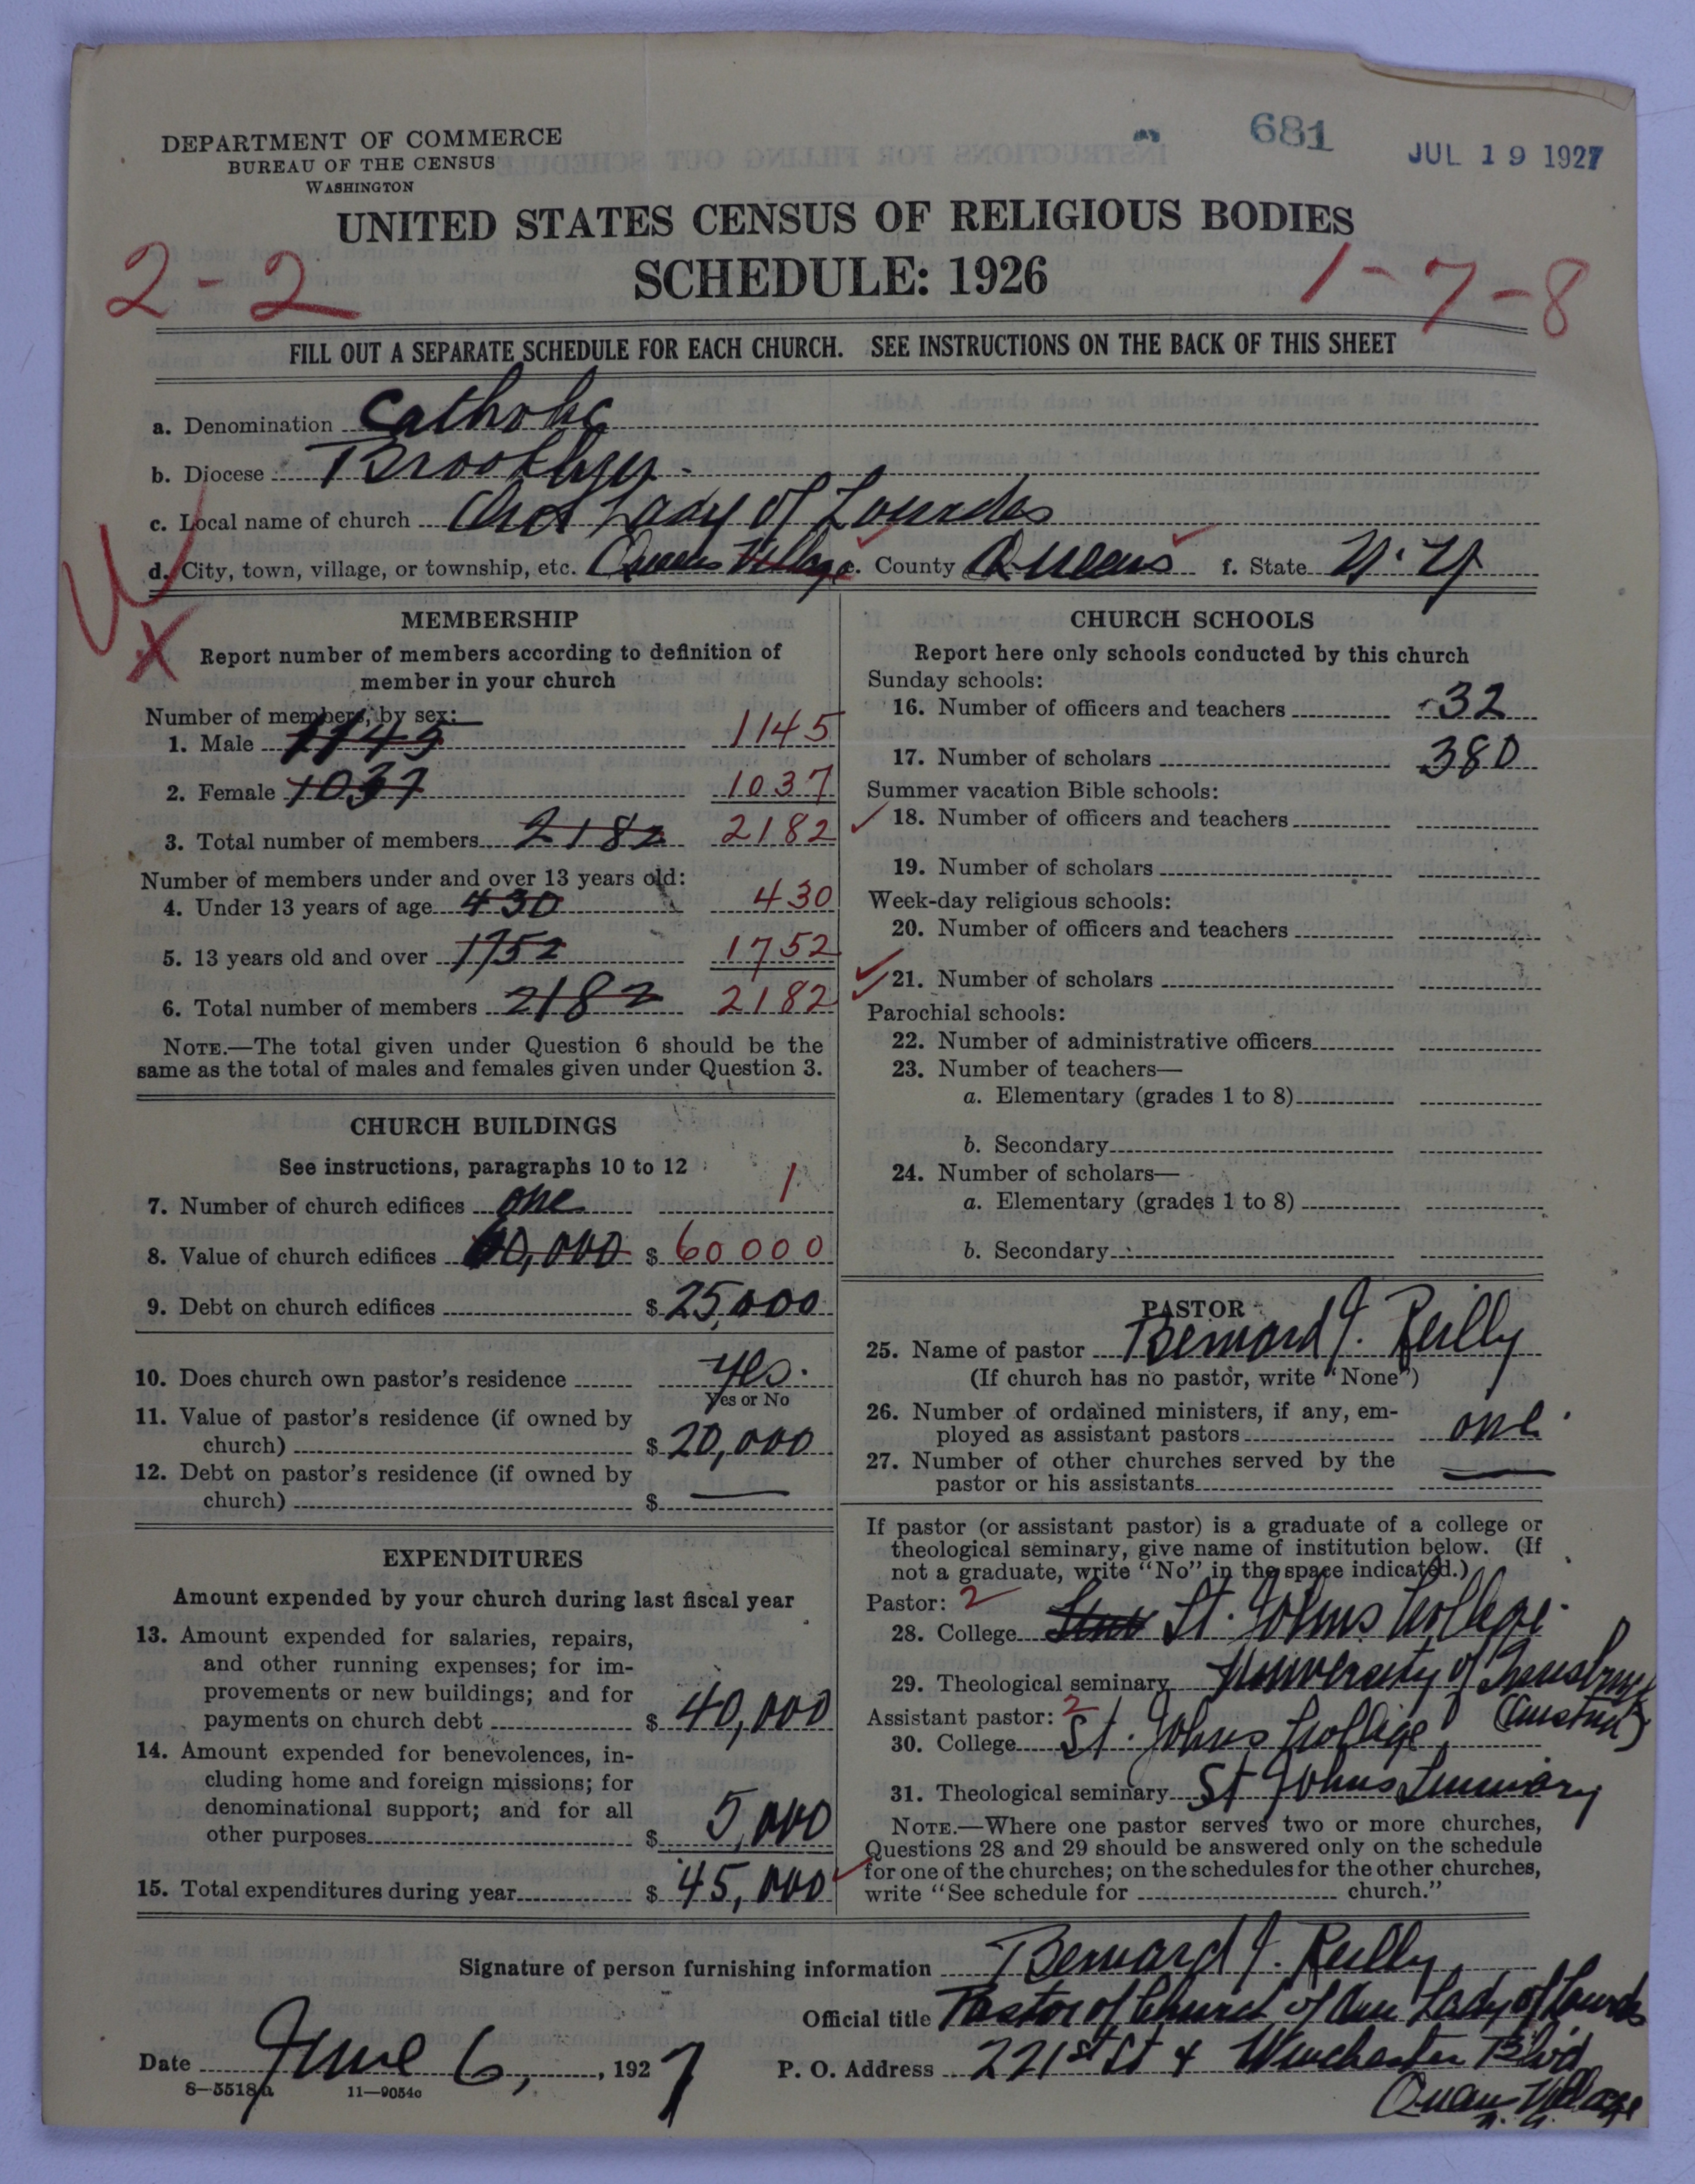 681
JUL 19 1927
DEPARTMENT OF COMMERCE
BUREAU OF THE CENSUS
WASHINGTON
UNITED STATES CENSUS OF RELIGIOUS BODIES
SCHEDULE: 1926
2-2
1-7-8
FILL OUT A SEPARATE SCHEDULE FOR EACH CHURCH. SEE INSTRUCTIONS ON THE BACK OF THIS SHEET
a. Denomination Catholic
b. Diocese Brooklyn
c. Local name of church Our Lady of Lourdes
d. City, town, village, or township, etc. Queens Village e. County Queens f. State N.Y.
MEMBERSHIP
Report number of members according to definition of
member in your church
Number of members, by sex:
1. Male 1145 1145
2. Female 1037 1037
3. Total number of members 2182 2182
Number of members under and over 13 years old:
4. Under 13 years of age 430 430
5. 13 years old and over 1752 1752
6. Total number of members 2182 2182
NOTE.—The total given under Question 6 should be the
same as the total of males and females given under Question 3.
CHURCH BUILDINGS
See instructions, paragraphs 10 to 12
7. Number of church edifices one 1
8. Value of church edifices 60,000 $ 60000
9. Debt on church edifices $ 25,000
10. Does church own pastor's residence yes.
Yes or No
11. Value of pastor's residence (if owned by
church) $ 20,000
12. Debt on pastor's residence (if owned by
church) $ —
EXPENDITURES
Amount expended by your church during last fiscal year
13. Amount expended for salaries, repairs,
and other running expenses; for im-
provements or new buildings; and for
payments on church debt $ 40,000
14. Amount expended for benevolences, in-
cluding home and foreign missions; for
denominational support; and for all
other purposes $ 5,000
15. Total expenditures during year $ 45,000
CHURCH SCHOOLS
Report here only schools conducted by this church
Sunday schools:
16. Number of officers and teachers 32
17. Number of scholars 380
Summer vacation Bible schools:
18. Number of officers and teachers
19. Number of scholars
Week-day religious schools:
20. Number of officers and teachers
21. Number of scholars
Parochial schools:
22. Number of administrative officers
23. Number of teachers—
a. Elementary (grades 1 to 8)
b. Secondary
24. Number of scholars—
a. Elementary (grades 1 to 8)
b. Secondary
PASTOR
25. Name of pastor Bernard J. Reilly
(If church has no pastor, write "None")
26. Number of ordained ministers, if any, em-
ployed as assistant pastors one
27. Number of other churches served by the
pastor or his assistants —
If pastor (or assistant pastor) is a graduate of a college or
theological seminary, give name of institution below. (If
not a graduate, write "No" in the space indicated.)
Pastor: 2
28. College St. Johns College.
29. Theological seminary University of Innsbruck
(Austria)
Assistant pastor: 2
30. College St. Johns College
31. Theological seminary St Johns Seminary
NOTE.—Where one pastor serves two or more churches,
Questions 28 and 29 should be answered only on the schedule
for one of the churches; on the schedules for the other churches,
write "See schedule for church."
Signature of person furnishing information Bernard J. Reilly
Official title Pastor of Church of Our Lady of Lourdes
Date June 6, 1927
P. O. Address 221st St & Winchester Blvd
Queens Village
N. Y.
8—5518a 11—9054c